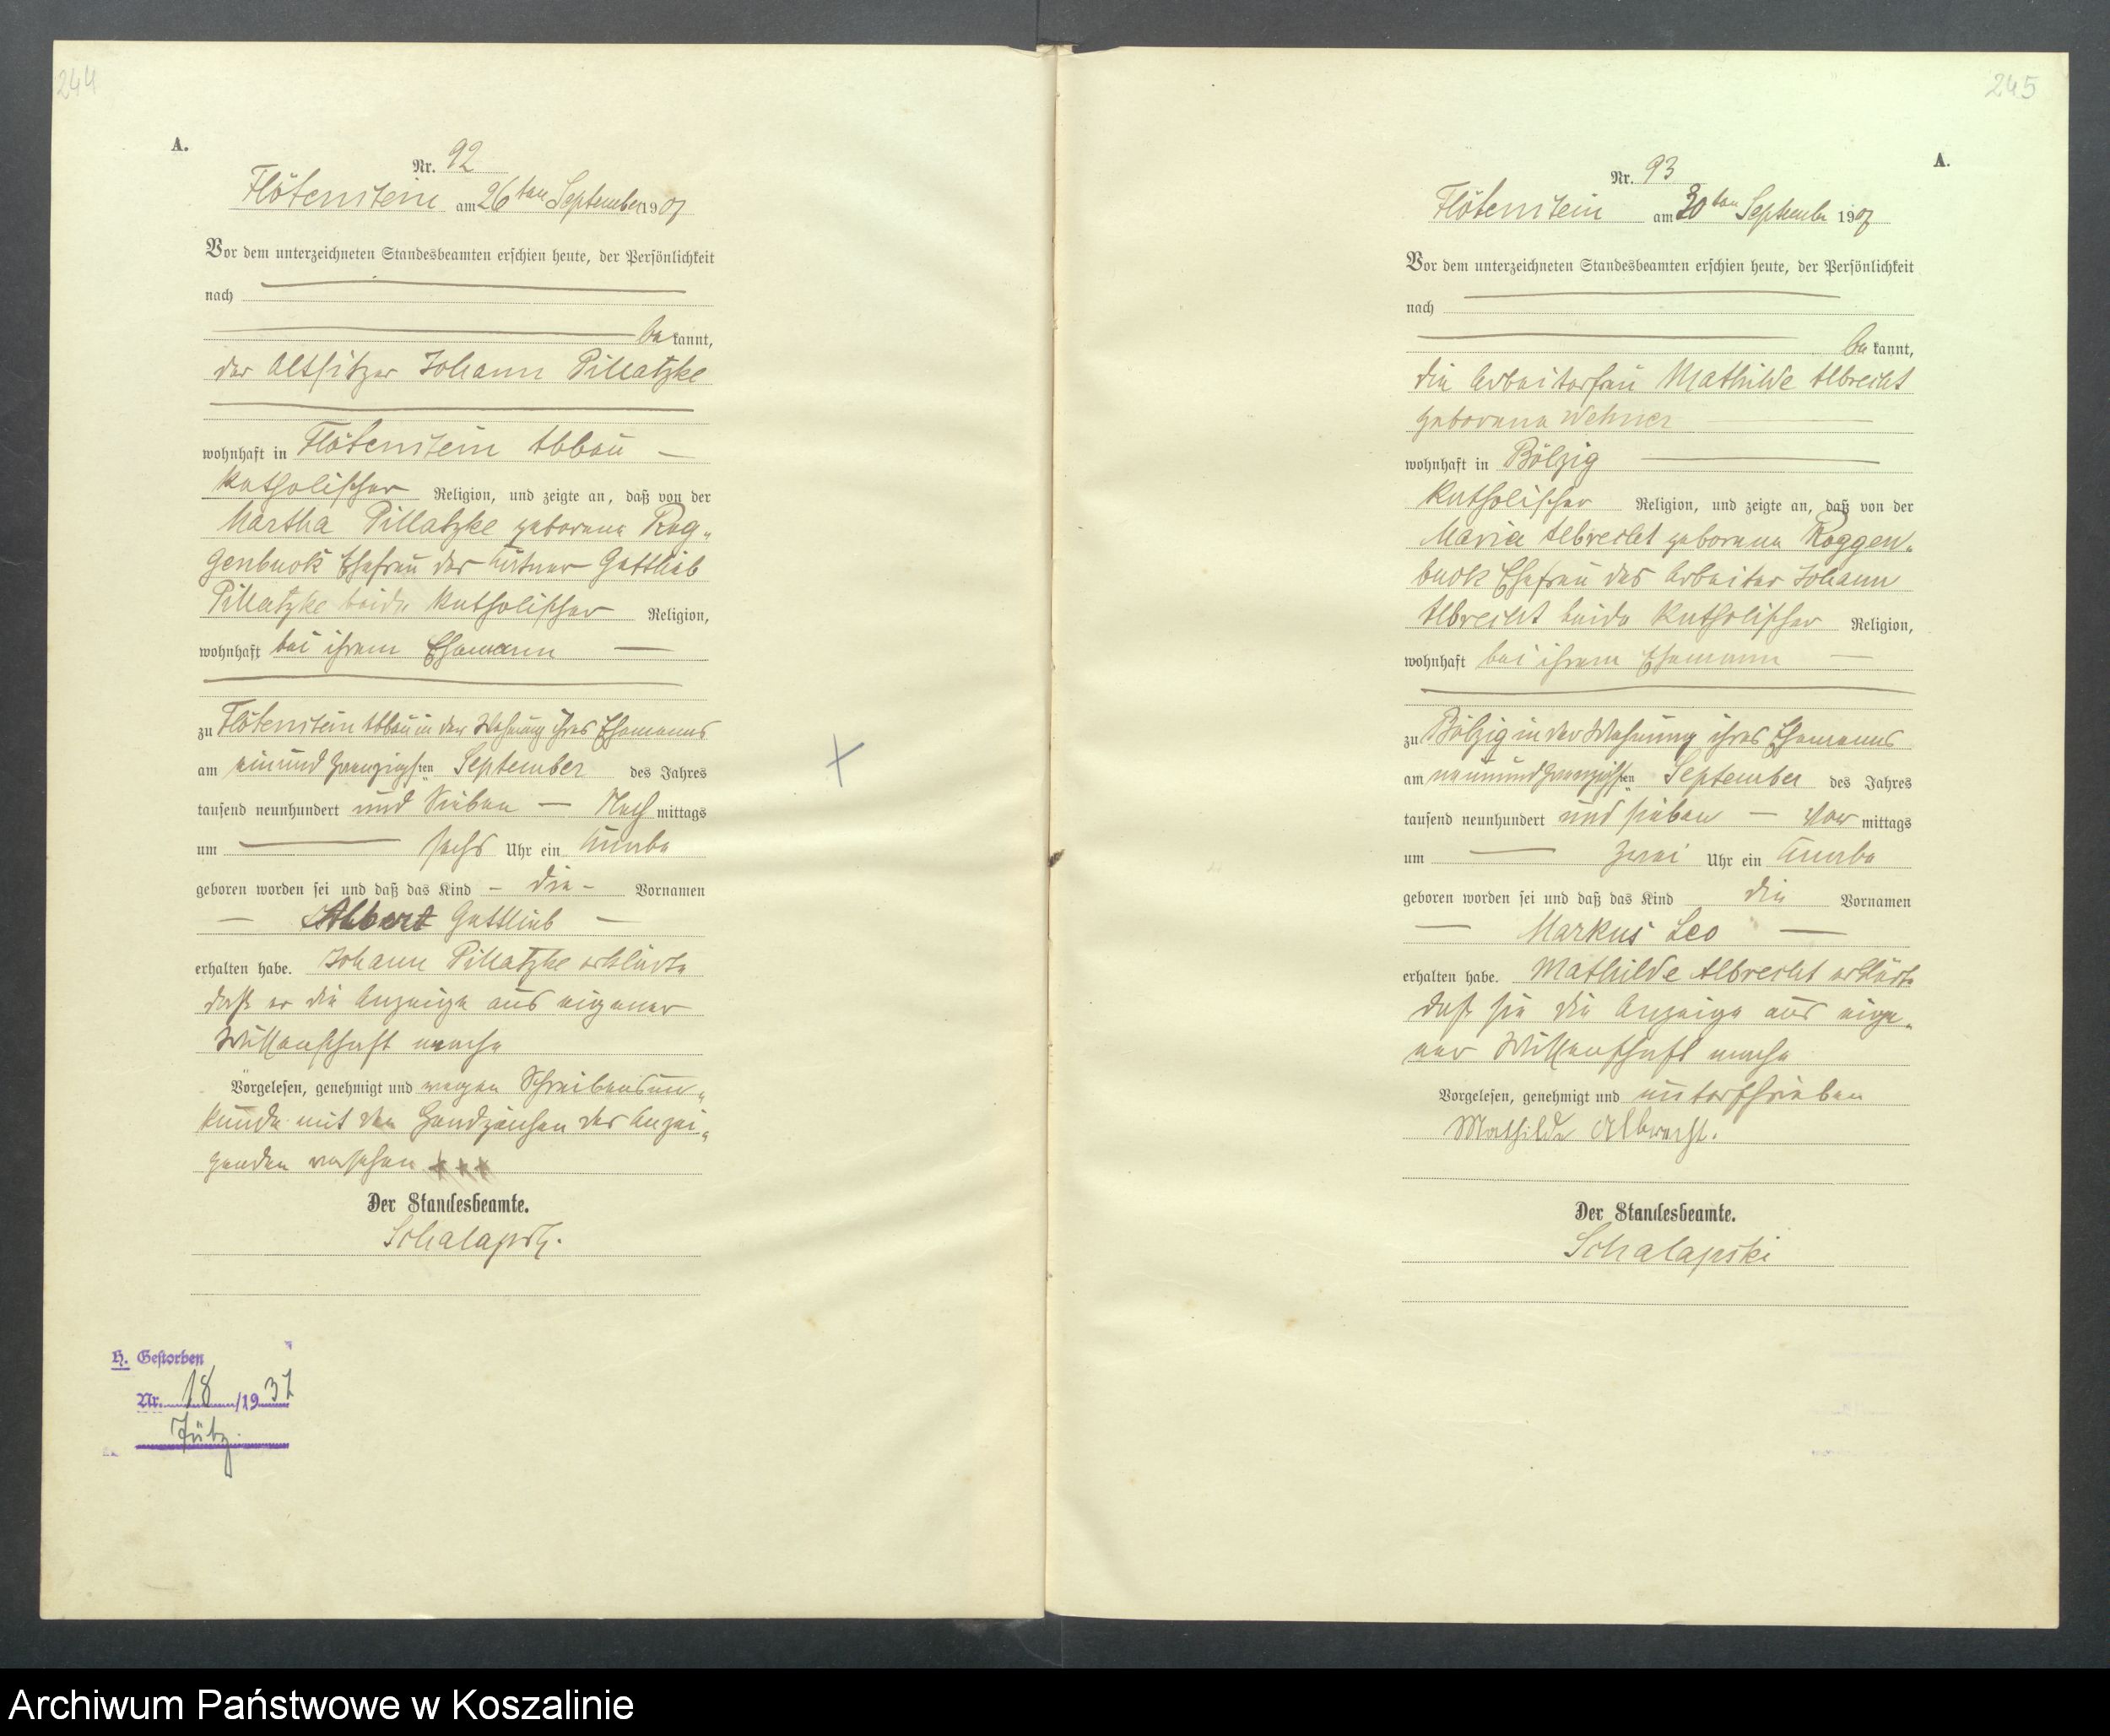 244
A.
Nr. 92
Flötenstein am 26ten September 1907
Vor dem unterzeichneten Standesbeamten erschien heute, der Persönlichkeit
nach
bekannt,
der Altsitzer Johann Pillatzke
wohnhaft in Flötenstein Abbau
katholischer Religion, und zeigte an, daß von der
Martha Pillatzke geborene Rog-
genbuck Ehefrau des Gottlieb
Pillatzke beide katholischer Religion,
wohnhaft bei ihrem Ehemann
zu Flötenstein Abbau in der Wohnung ihres Ehemanns
am einundzwanzigsten September des Jahres
tausend neunhundert und sieben Nachmittags
um sechs Uhr ein Knabe
geboren worden sei und daß das Kind die Vornamen
Albert Gottlieb
erhalten habe. Johann Pillatzke erklärte
daß er die Anzeige aus eigener
Wissenschaft mache
Vorgelesen, genehmigt und wegen Schreibensun-
kunde mit den Handzeichen des Anzei-
genden versehen +++
Der Standesbeamte.
Schalapski.
H. Gestorben
Nr. 18/1931
245
A.
Nr. 93
Flötenstein am 30ten September 1907
Vor dem unterzeichneten Standesbeamten erschien heute, der Persönlichkeit
nach
bekannt,
die Arbeiterfrau Mathilde Albrecht
geborene Wehner
wohnhaft in Bölzig
katholischer Religion, und zeigte an, daß von der
Maria Albrecht geborene Roggen-
buck Ehefrau des Arbeiter Johann
Albrecht beide katholischer Religion,
wohnhaft bei ihrem Ehemann
zu Bölzig in der Wohnung ihres Ehemanns
am neunundzwanzigsten September des Jahres
tausend neunhundert und sieben Vormittags
um zwei Uhr ein Knabe
geboren worden sei und daß das Kind die Vornamen
Markus Leo
erhalten habe. Mathilde Albrecht erklärte
daß sie die Anzeige aus eige-
ner Wissenschaft mache
Vorgelesen, genehmigt und unterschrieben
Mathilde Albrecht.
Der Standesbeamte.
Schalapski
Archiwum Państwowe w Koszalinie